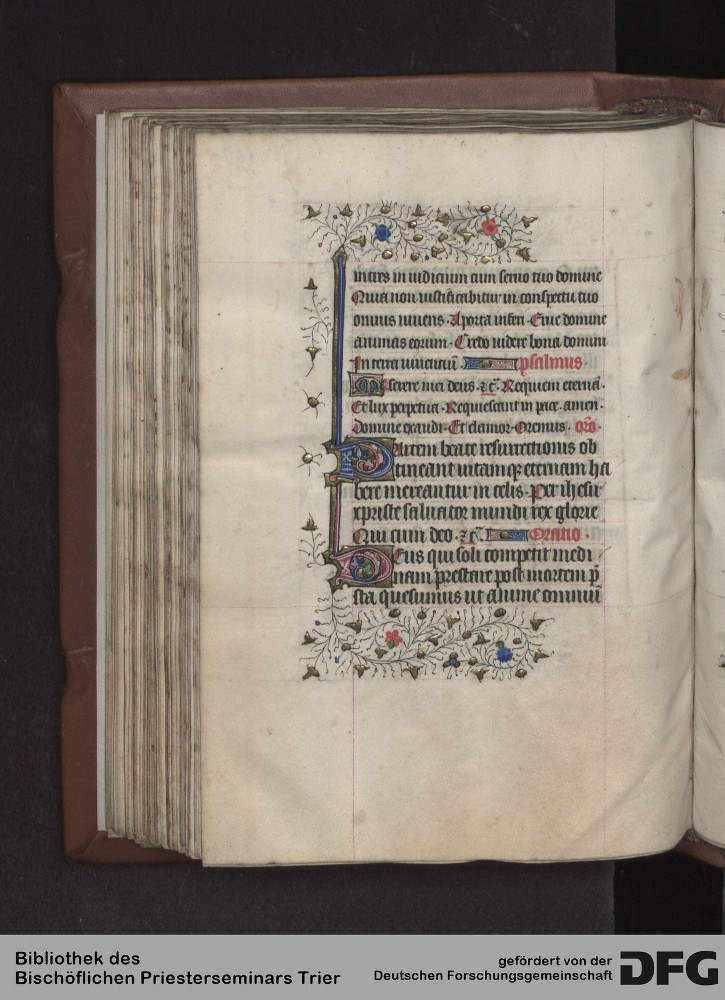 intres in iudicium cum seruo tuo domine
Quia non iustificabitur in conspectu tuo
omnis uiuens. A porta inferi. Erue domine
animas eorum. Credo uidere bona domini
In terra uiuentiū. psalmus.
Miserere mei deus. ⁊c̄. Requiem eternā.
Et lux perpetua. Requiescant in pace. amen.
Domine exaudi. Et clamor. Oremus. orō.
Partem beate resurrectionis ob
tineant uitamqꝫ eternam ha
bere mereantur in celis. Per ihesu
xpriste saluator mundi rex glorie
Qui cum deo. ⁊c̄. Oratio.
Deus qui soli competit medi
nam prestare post mortem p̄
sta quesumus ut anime omniū
Bibliothek des
Bischöflichen Priesterseminars Trier
gefördert von der
Deutschen Forschungsgemeinschaft
DFG